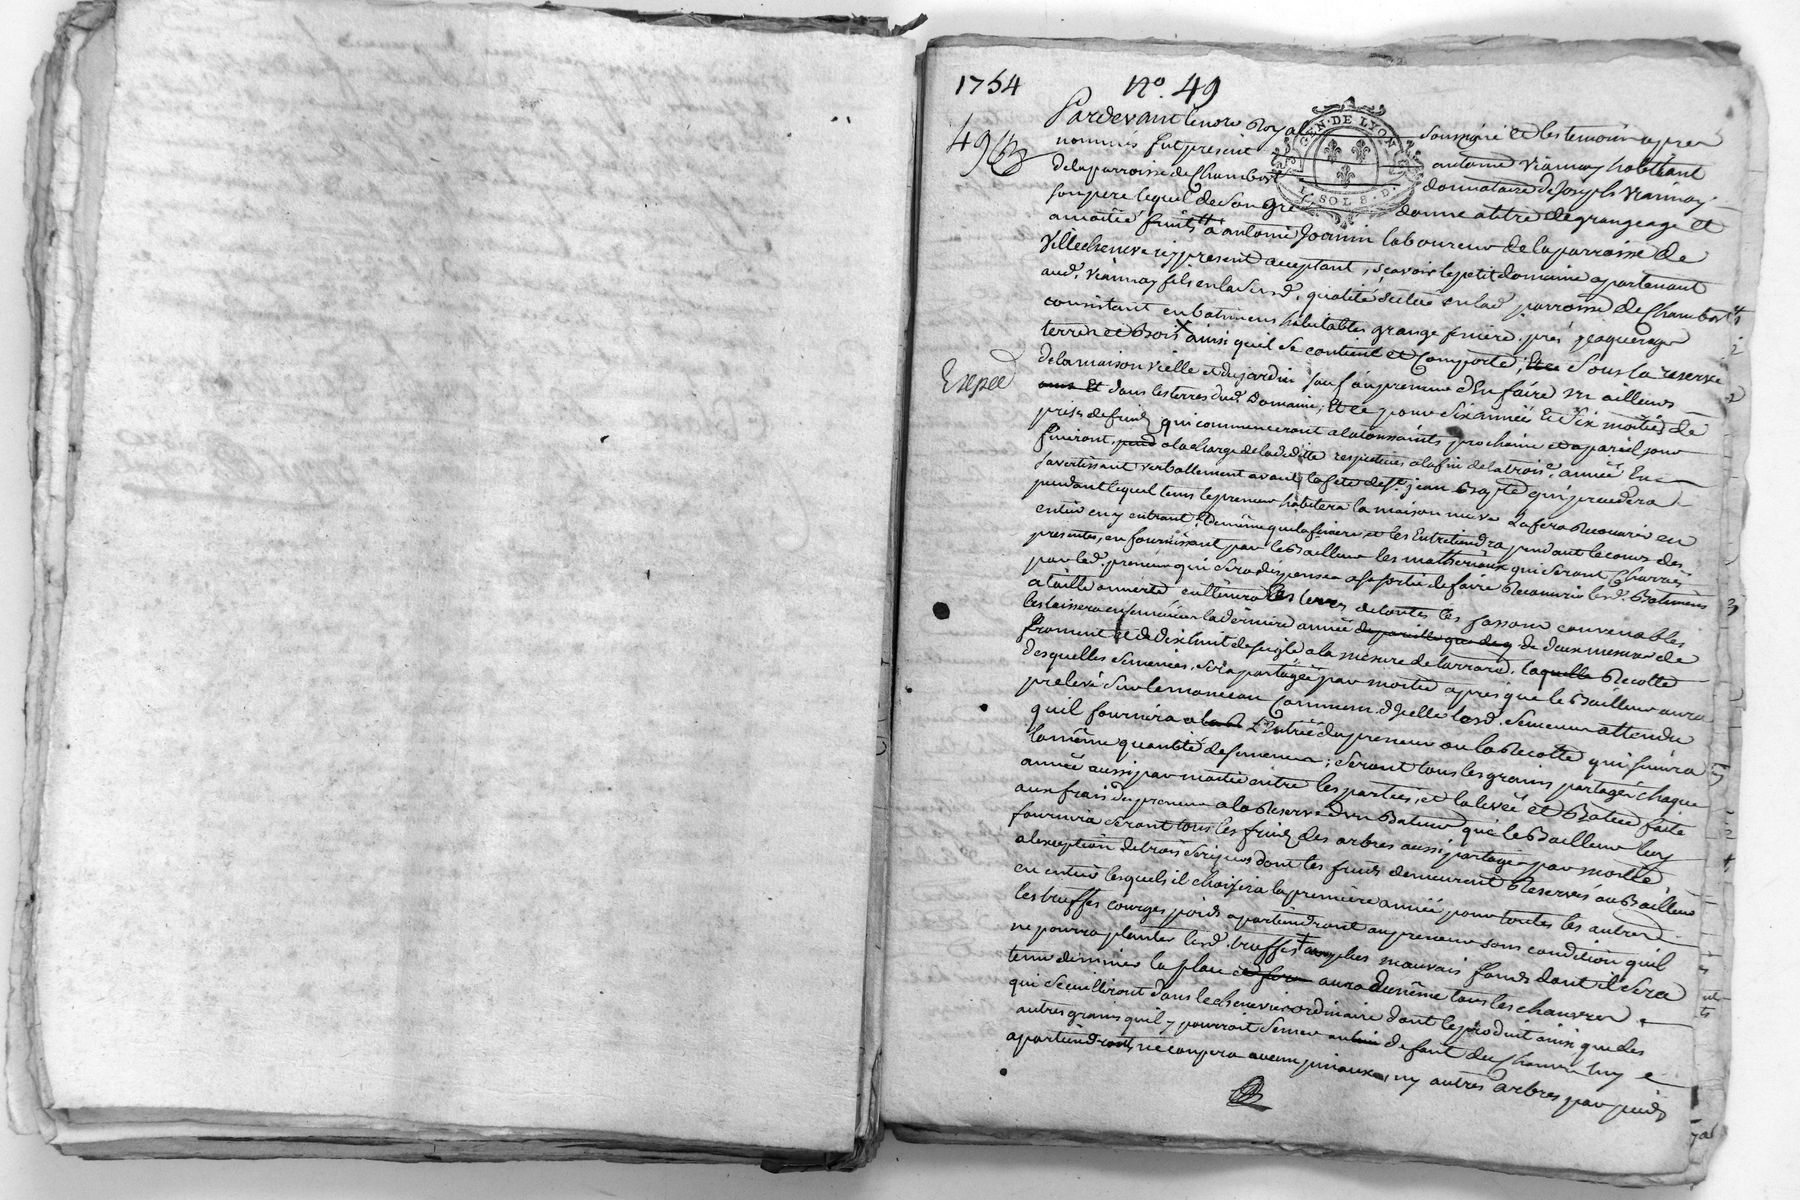 1754 no. 49
49
Pardevant le nore Royal soussigné et les temoins apres
nommés fut present antoine Viannay habitant
de la parroisse de Chambost donnataire de Joseph Viannay
son pere lequel de son gré donne a titre de grangeage et
a moitié fruits a antoine Joannin laboureur de la parroisse de
Villecheneve icy present acceptant, sçavoir le petit domaine apartenant
aud. Viannay fils en la susd. qualité situé en lad. parroisse de Chambost
consistant en batimens habitables grange feniere, prés pasquerage
terres et Bois ainsi quil se contient et Comporte, sous la reserve
de la maison vielle et du jardin sauf au preneur d'En faire un ailleurs
Exped
dans les terres dud. Domaine; Et ce pour six années Et six moitiés de
prises de fruits qui commenceront a la toussaints prochaine et a pareil jour
finiront, a la charge de la deditte respective a la fin de la trois.e année En
s'avertissant verballement avant la fete de st jean Baptte qui precedera
pendant lequel tems le preneur habitera la maison neuve La fera Recouvrir en
entier en y entrant, de même que la feniere et les Entretiendra pendant le cours des
presentes, en fournissant par le Bailleur les matheriaux qui seront Charriés
par led. preneur qui sera dispensé a sa sortie de faire Recouvrir lesd. Batimens
a taille ouverte, cultivera les terres de toutes les fassons convenables
les laissera ensemencées la derniere année de deux mesures de
froment et de dix huit de seigle a la mesure de tarrare, Recolte
desquelles semences, sera partagée par moitié apres que le Bailleur aura
prelevé sur le monceau Commun d'Icelle lesd. semences attendu
quil fournira a L'Entrée du preneur ou la Recolte qui suivra
la même quantité de semences; seront tous les grains partagés chaque
année aussi par moitié entre les parties, et la levée et Batue faite
aux frais du preneur a la Reserve d'un Bateur que le Bailleur luy
fournira seront tous les fruits des arbres aussi partagés par moitié,
a l'exception de trois dont les fruits demeurent Reservés au Bailleur
en entier lesquels il choisira la premiere année pour toutes les autres
les truffes courges poids apartiendront au preneur sous condition quil
ne pourra planter lesd. truffes mauvais fonds dont il sera
tenu d'immer la place aura de même tous les chanvres
qui se cuilliront dans le chenevier ordinaire dont le produit ainsi que des
autres grains quil y pourroit semer a defaut du Chanvre luy
apartiendront, ne coupera aucuns, ny autres arbres par pieds